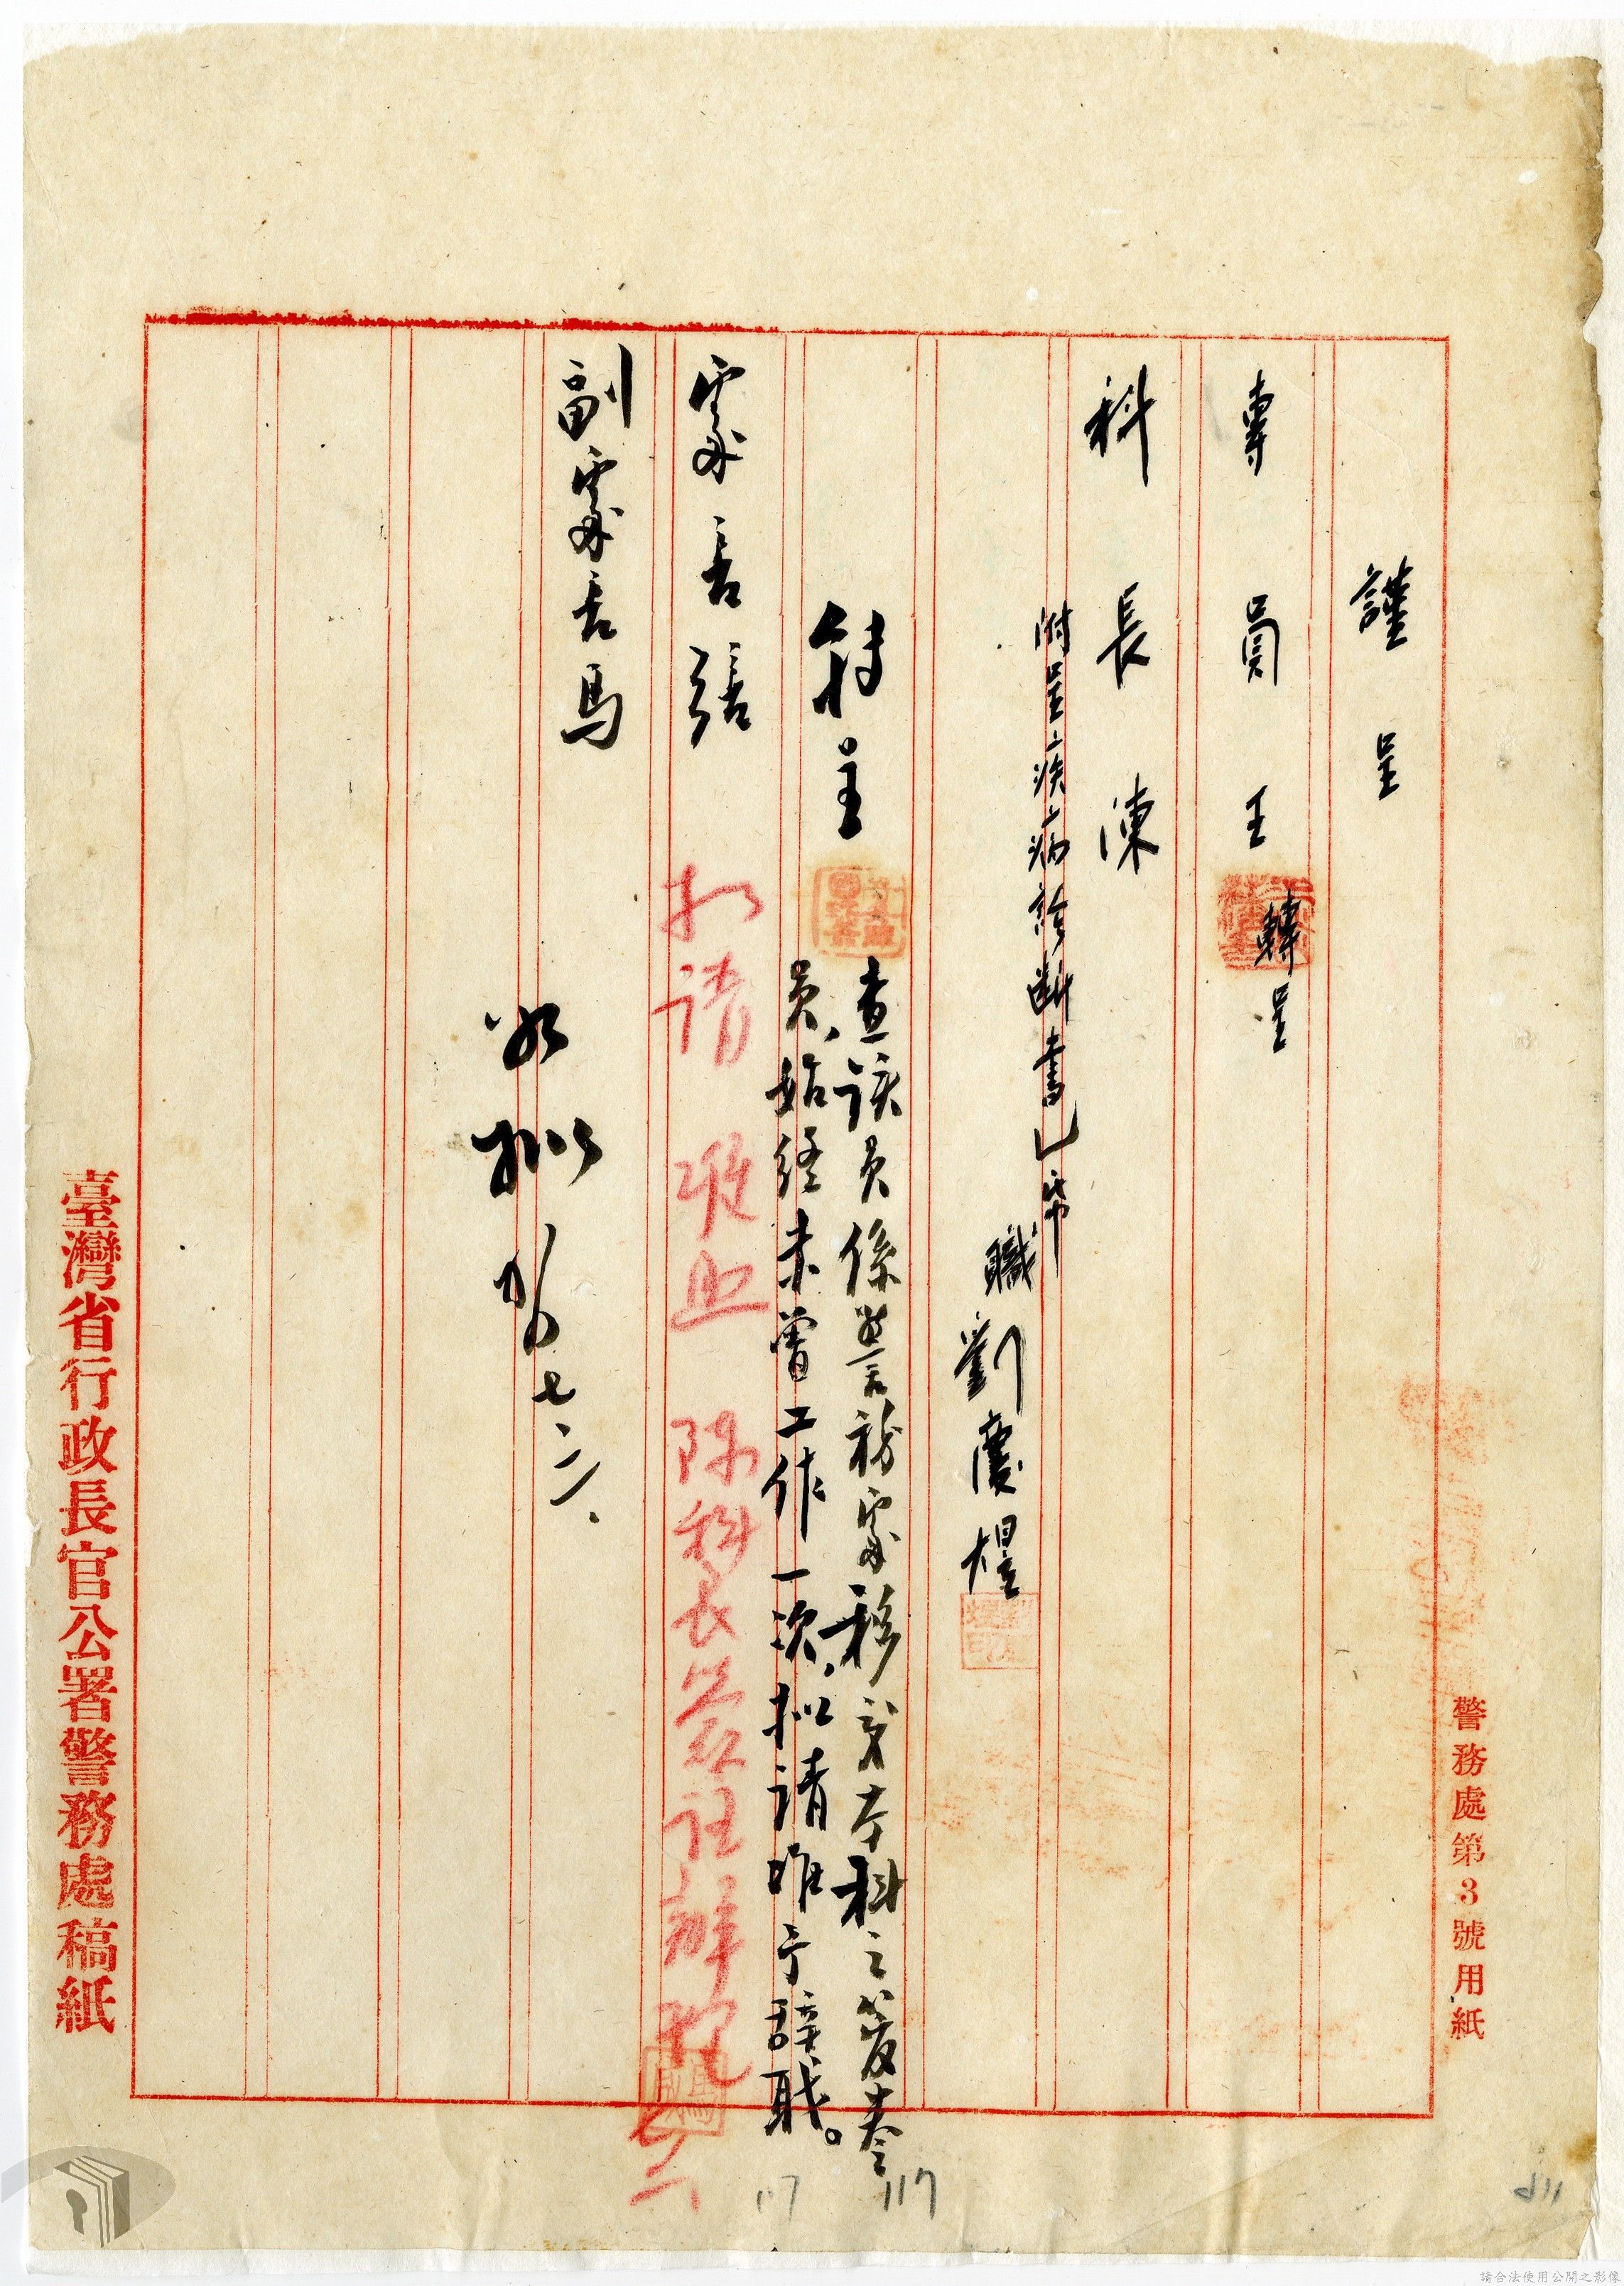 警務處第3號用紙
謹呈
專員王 轉呈
科長陳
附呈疾病診斷書乙帋
職劉慶煜
轉呈
查該員係警務處移交本科之
員，始終未曾工作一次，拟請准予辞职。
處長張
拟請 陳科長簽註辦理
副處長馬
如拟
七、二、
臺灣省行政長官公署警務處稿紙
117
117
請合法使用公開之影像